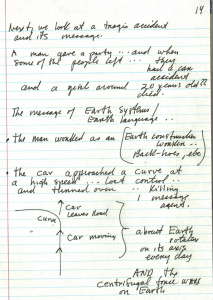 14
Next, we look at a tragic accident
and its message.
A man gave a party... and when
some of the people left... they
had a car
accident
and a girl around 20 years old
died
The message of Earth Systems /
Earth language..
• the man worked as an Earth construction
worker..
Back-hoes, etc
• the car approached a curve at
a high speed... lost control..
and turned over.. killing
1 message
agent.
Car
Leaves Road
Curve
Car moving
about Earth
rotates
on its axis
every day
AND the
centrifugal force works
on Earth